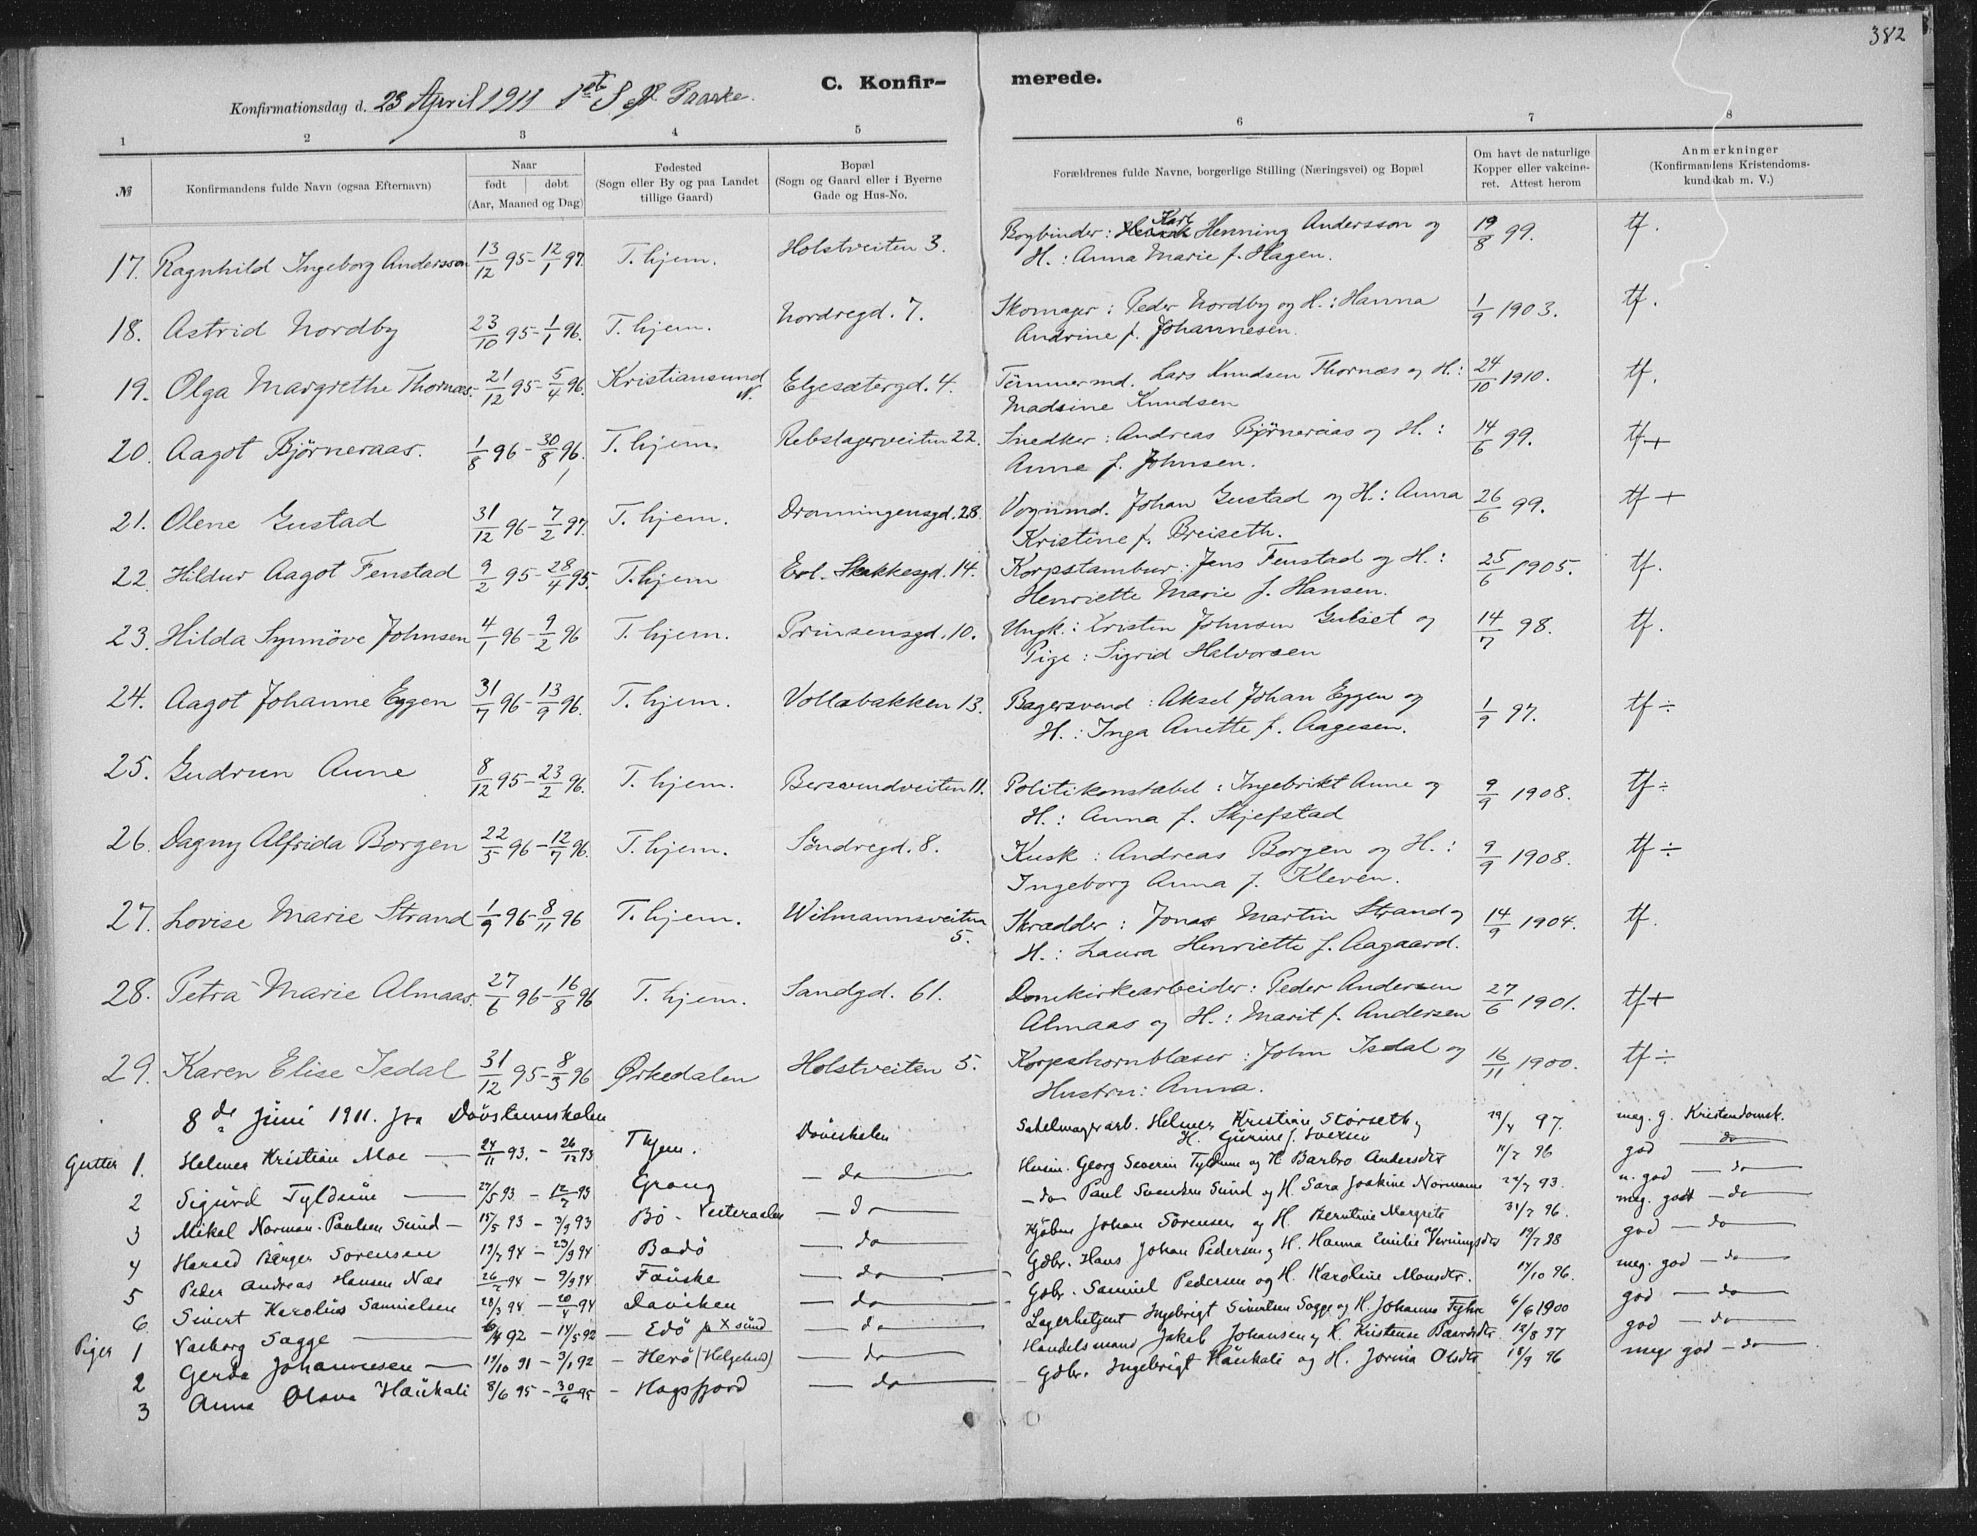 382
C. Konfirmerede.
Konfirmationsdag d. 23 April 1911 1ste S. e. Paaske.
1 2 3 4 5 6 7 8
№
Konfirmandens fulde Navn (ogsaa Efternavn)
Naar
født | døbt
(Aar, Maaned og Dag)
Fødested
(Sogn eller By og paa Landet
tillige Gaard)
Bopæl
(Sogn og Gaard eller i Byerne
Gade og Hus-No.
Forældrenes fulde Navne, borgerlige Stilling (Næringsvei) og Bopæl
Om havt de naturlige
Kopper eller vakcine-
ret. Attest herom
Anmærkninger
(Konfirmandens Kristendoms-
kundskab m. V.)
17. Ragnhild Ingeborg Andersson 13/12 95 - 12/1 97. T.hjem. Holstveiten 3. Bogbinder: Karl Henning Andersson og 19/8 99. tf.
H.: Anna Marie f. Hagen.
18. Astrid Nordby 23/10 95 - 1/1 96. T.hjem. Nordregd. 7. Skomager: Peder Nordby og H.: Hanna 1/9 1903. tf.
Andrine f. Johannesen.
19. Olga Margrethe Thornæs. 21/12 95 - 5/4 96. Kristiansund N. Elgesætergd. 4. Tømmermd. Lars Knudsen Thornæs og H.: 24/10 1910. tf.
Madsine Knudsen
20. Aagot Bjørneraas. 1/8 96 - 30/8 96. T.hjem. Rebslagerveiten 22. Snedker: Andreas Bjørneraas og H.: 14/6 99. tf+
Anne f. Johnsen.
21. Olene Gustad 31/12 96 - 7/2 97. T.hjem. Dronningensgd. 28. Vognmd. Johan Gustad og H.: Anna 26/6 99. tf +
Kristine f. Breiseth.
22. Hildur Aagot Fenstad 9/2 95 - 28/4 95. T.hjem Erl. Skakkesgd. 14. Korpstambur: Jens Fenstad og H.: 25/6 1905. tf.
Henriette Marie f. Hansen.
23. Hilda Synnöve Johnsen 4/1 96 - 9/2 96 T.hjem. Prinsensgd. 10. Ungk.: Kristen Johnsen Gulset og 14/7 98. tf.
Pige: Sigrid Halvorsen
24. Aagot Johanne Eggen 31/7 96 - 13/9 96. T.hjem. Vollabakken 13. Bagersvend: Aksel Johan Eggen og 1/9 97. tf ÷
H.: Inga Anette f. Aagesen.
25. Gudrun Aune 8/12 95 - 23/2 96. T.hjem. Bersvendveiten 11. Politikonstabel: Ingebrikt Aune og 9/9 1908. tf ÷
H.: Anna f. Skjefstad
26. Dagny Alfrida Borgen 22/5 96 - 12/7 96. T.hjem. Söndregd. 8. Kusk: Andreas Borgen og H.: 9/9 1908. tf ÷
Ingeborg Anna f. Kleven.
27. Lovise Marie Strand 1/9 96 - 8/11 96 T.hjem. Wilmannsveiten 5. Skrædder: Jonas Martin Strand og 14/9 1904. tf.
H.: Laura Henriette f. Aagaard.
28. Petra Marie Almaas. 27/6 96 - 16/8 96 T.hjem. Sandgd. 61. Domkirkearbeider: Peder Andersen 27/6 1901. tf+
Almaas og H.: Marit f. Andersen
29. Karen Elise Isdal 31/12 95 - 8/3 96 Ørkedalen Holstveiten 5. Korpshornblæser: John Isdal og 16/11 1900. tf ÷
Hustru: Anna.
8de Juni 1911. fra Dövstumskolen
Gutter 1. Helmer Kristian Moe 24/11 93. - 26/12 93 Thjem. Döveskolen Sadelmagerarb. Helmer Kristian Störseth og 97. meg. g. Kristendomsk.
H. Gurine f. Iversen
2 Sigurd Tyldum 27/5 93 - 12/7 93 Grong - do - Husm. Georg Severin Tyldum og H Barbro Andersdtr 11/7 96 god - do -
3 Mikal Norman Paulsen Sund - 15/5 93 - 3/9 93 Bö - Vesteraalen - do - - do - Paul Svendsen Sund og H. Sara Joakine Normann 93. n. god - do -
4 Harald Birger Sorensen 19/7 94 - 23/9 94 Bodö - do - Kjöbm Johan Sörensen og H. Berntine Margrete 31/7 96. meg. godt - do -
5 Peder Andreas Hansen Næs 26/2 94 - 9/9 94 Fauske - do - Gdbr. Hans Johan Pedersen og H. Hanna Emilie 19/7 98 god - do -
6. Sivert Karolius Samuelsen 28/3 94 - 20/4 94 Daviken - do - Gdbr. Samuel Pedersen og H. Karoline Monsdtr. 14/10 96. meg. god - do -
Piger 1 Valborg Sagge 6/4 92 - 14/5 92 - Edö p Xsund - do - Lagerbetjent Ingebrigt Sivertsen Sagge og H. Johanne 6/6 1900 god - do -
2 Gerda Johannesen - 19/10 91 - 3/1 92 - Herö (Helgeland) - do - Handelsmand Jakob Johansen og H. Kristense 12/8 97 god - do -
3 Anna Olava Haukali 8/6 95 - 30/6 95 - Hogsfjord - do - Gdbr. Ingebrigt Haukali og H. Jorina Olsdtr 18/9 96 meg. god - do -